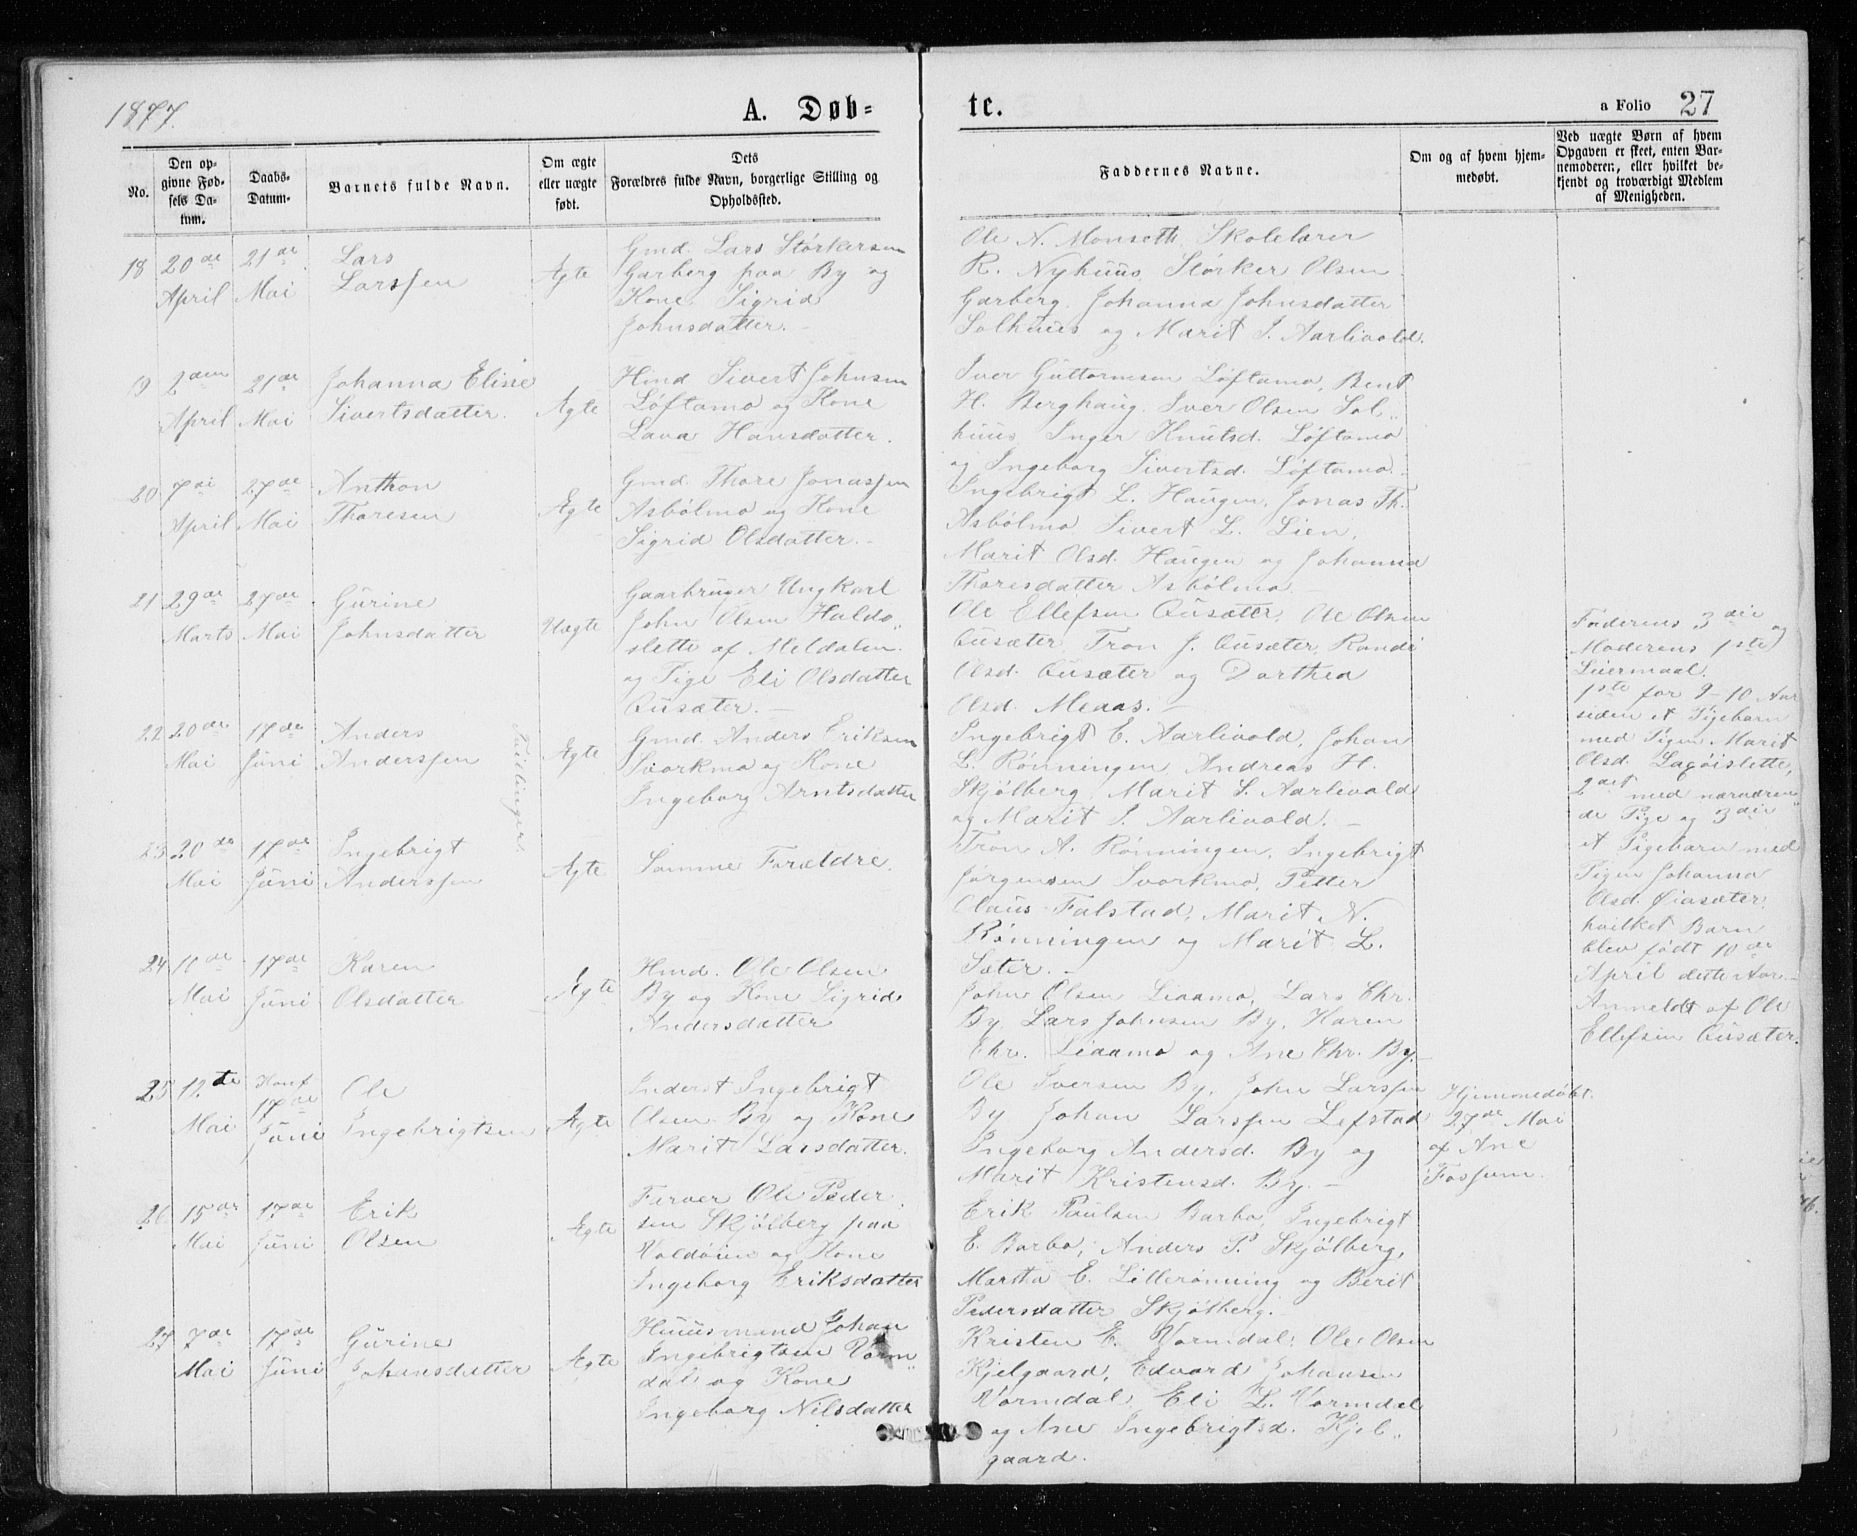 1877.
A. Døb=
te.
a Folio 27
No.
Den op-
givne Fød-
sels Da-
tum.
Daabs-
Datum.
Barnets fulde Navn.
Om ægte
eller uægte
født.
Dets
Forældres fulde Navn, borgerlige Stilling og
Opholdssted.
Faddernes Navne.
Om og af hvem hjem-
medøbt.
Ved uægte Børn af hvem
Opgaven er skeet, enten Bar-
nemoderen, eller hvilket be-
kjendt og troværdigt Medlem
af Menigheden.
18
20de
April
21de
Mai
Lars
Larssen
Ægte
Gmd. Lars Størkersen
Garberg paa By og
Kone Sigrid
Johnsdatter.
Ole N. Monseth, Skolelærer
R. Nyhuus, Størker Olsen
Garberg, Johanna Johnsdatter
Solhuus og Marit J. Aarlivold.
19
2den
April
21de
Mai
Johanna Elise
Sivertsdatter.
Ægte
Hmd. Sivert Johnsen
Løftamo og Kone
Lava Hansdatter.
Iver Guttormsen Løftamo, Bent
H. Berghaug, Iver Olsen Sol„
huus, Inger Knutsd. Løftamo
og Ingeborg Sivertsd. Løftamo.
20
7de
April
27de
Mai
Anthon
Thoresen
Ægte
Gmd. Thore Jonassen
Asbølmo og Kone
Sigrid Olsdatter.
Ingebrigt L. Haugen, Jonas Th.
Asbølmo, Sivert L. Lien,
Marit Olsd. Haugen og Johanna
Thoresdatter Asbølmo.
21
29de
Marts
27de
Mai
Gurine
Johnsdatter
Uægte
Gaarbruger Ungkarl
John Olsen Haldo„
slette af Meldalen
og Pige Eli Olsdatter
Qusæter.
Ole Ellefsen Qusæter, Ole Olsen
Qusæter, Tron J. Qusæter, Randi
Olsd. Qusæter og Dorthea
Olsd. Meaas.
Faderens 3die og
Moderens 1ste
Leiermaal.
1ste for 9-10 Aar
siden et Pigebarn
med Pigen Marit
Olsd. Lagøislette,
2det med nærværen„
de Pige og 3die
et Pigebarn med
Pigen Johanna
Olsd. Øiasæter,
hvilket Barn
blev født 10de
April dette Aar.
Anmeldt af Ole
Ellefsen Qusæter.
22
20de
Mai
17de
Juni
Anders
Anderssen
Tvillinger.
Ægte
Gmd. Anders Eriksen
Svorkmo og Kone
Ingeborg Arntsdatter
Ingebrigt E. Aarlivold, Johan
L. Rønningen, Andreas H.
Skjølberg, Marit S. Aarlivold
og Marit J. Aarlivold.
23
20de
Mai
17de
Juni
Ingebrigt
Anderssen
Ægte
Samme Forældre.
Tron A. Rønningen, Ingebrigt
Jørgensen Svorkmo, Petter
Claus Falstad, Marit N.
Rønningen og Marit L.
Sæter.
24
10de
Mai
17de
Juni
Karen
Olsdatter
Ægte
Hmd. Ole Olsen
By og Kone Sigrid
Andersdatter
John Olsen Liaamo, Lars Chr.
By, Lars Johnsen By, Karen
Chr. Liaamo og Ane Chr. By.
25
12te
Mai
Konf
17de
Juni
Ole
Ingebrigtsen
Ægte
Inderst Ingebrigt
Olsen By og Kone
Marit Larsdatter.
Ole Iversen By, John Larssen
By, Johan Larssen Lefstad
Ingeborg Andersd. By og
Marit Kristensd. By.
Hjemmedøbt
27de Mai
af Ane
Fossum.
26
15de
Mai
17de
Juni
Erik
Olsen
Ægte
Farver Ole Peder
sen Skjølberg paa
Voldøien og Kone
Ingeborg Eriksdatter
Erik Paulsen Barbo, Ingebrigt
E. Barbo, Anders P. Skjølberg,
Martha E. Lillerønning og Berit
Pedersdatter Skjølberg.
27
7de
Mai
17de
Juni
Gurine
Johansdatter
Ægte
Huusmand Johan
Ingebrigtsen Vorm
dal og Kone
Ingeborg Nilsdatter
Kristen E. Vormdal, Ole Olsen
Kjelgaard, Edvard Johansen
Vormdal, Eli L. Vormdal
og Ane Ingebrigtsd. Kjel„
gaard.